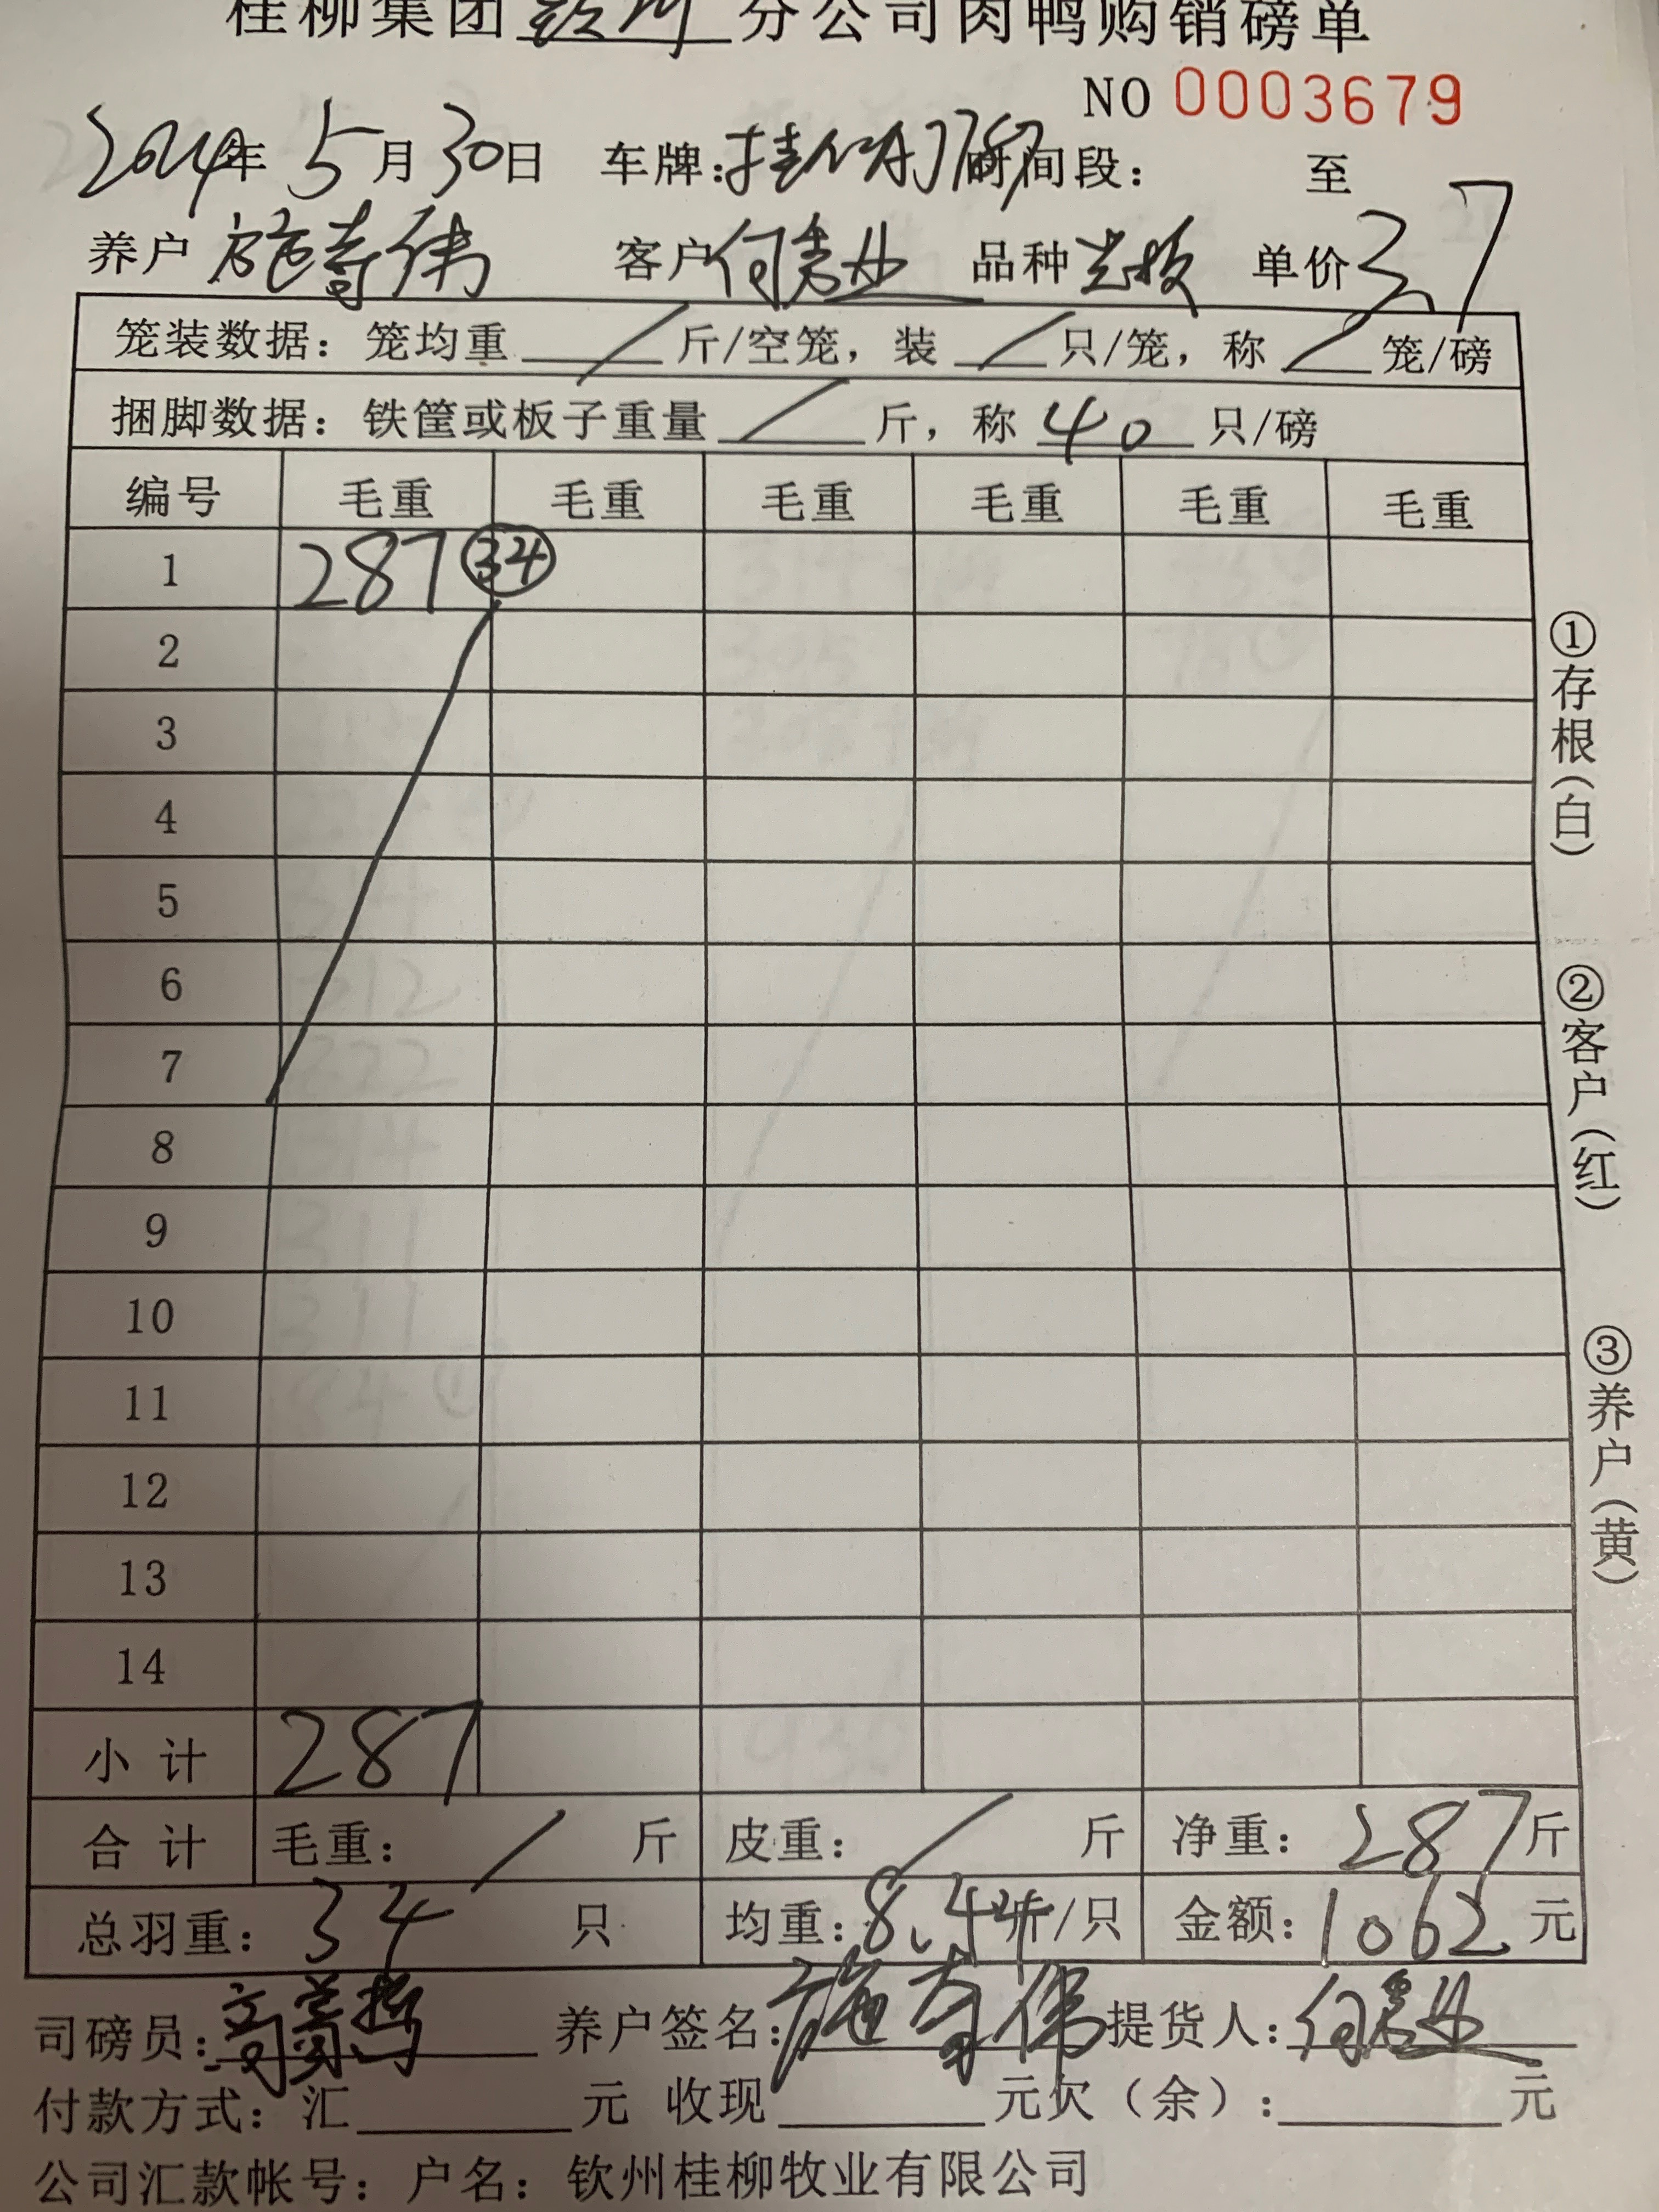 桂柳集团钦州分公司肉鸭购销磅单
NO 0003679
2024年 5月30日 车牌: 时间段: 至
养户 施 伟 客户 何 品种 单价 3.7
笼装数据: 笼均重 / 斤/空笼, 装 / 只/笼, 称 / 笼/磅
捆脚数据: 铁筐或板子重量 / 斤, 称 40 只/磅
编号 毛重 毛重 毛重 毛重 毛重 毛重
1 287 34
2
3
4
5
6
7
8
9
10
11
12
13
14
小计 287
合计 毛重: / 斤 皮重: / 斤 净重: 287斤
总羽重: 34 只 均重: 8.44斤/只 金额: 1062 元
司磅员: 养户签名: 施 伟 提货人: 何
付款方式: 汇 元 收现 元欠(余): 元
公司汇款帐号: 户名: 钦州桂柳牧业有限公司
①存根(白)
②客户(红)
③养户(黄)